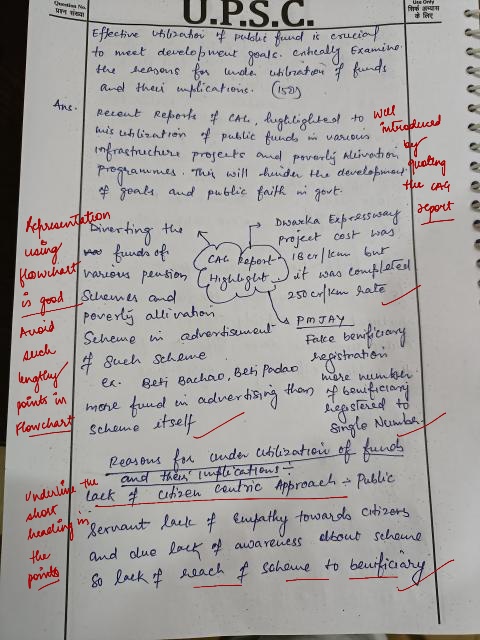 Question No.
प्रश्न संख्या
U.P.S.C.
Use Only
सिर्फ अभ्यास
के लिए
Effective utilization of public fund is crucial
to meet development goals. Critically Examine
the reasons for under utilization of funds
and their implications. (150)
Ans.
Recent Reports of CAG, highlighted to
mis utilization of public funds in various
infrastructure projects and poverty Allivation
programmes. This will hinder the development
of goals and public faith in govt.
Well
introduced
by
quoting
the CAG
report
Representation
using
flowchart
is good
Avoid
such
lengthy
points in
Flowchart
Diverting the
funds of
various pension
Schemes and
poverty allivation
Scheme in advertisement
of Such scheme
ex. Beti Bachao, Beti Padao
more fund in advertising than
scheme itself
CAG Report
Highlight
Dwarka Expressway
project cost was
18 cr/km but
it was completed
250 cr/km rate
PMJAY
Fake benificiary
registration
more number
of benificiary
registered to
Single Number
Reasons for under utilization of funds
and their implications :-
lack of citizen Centric Approach :- Public
Servant lack of Empathy towards citizens
and due lack of awareness about scheme
so lack of reach of scheme to benificiary
Underline the
short
heading in
the
points